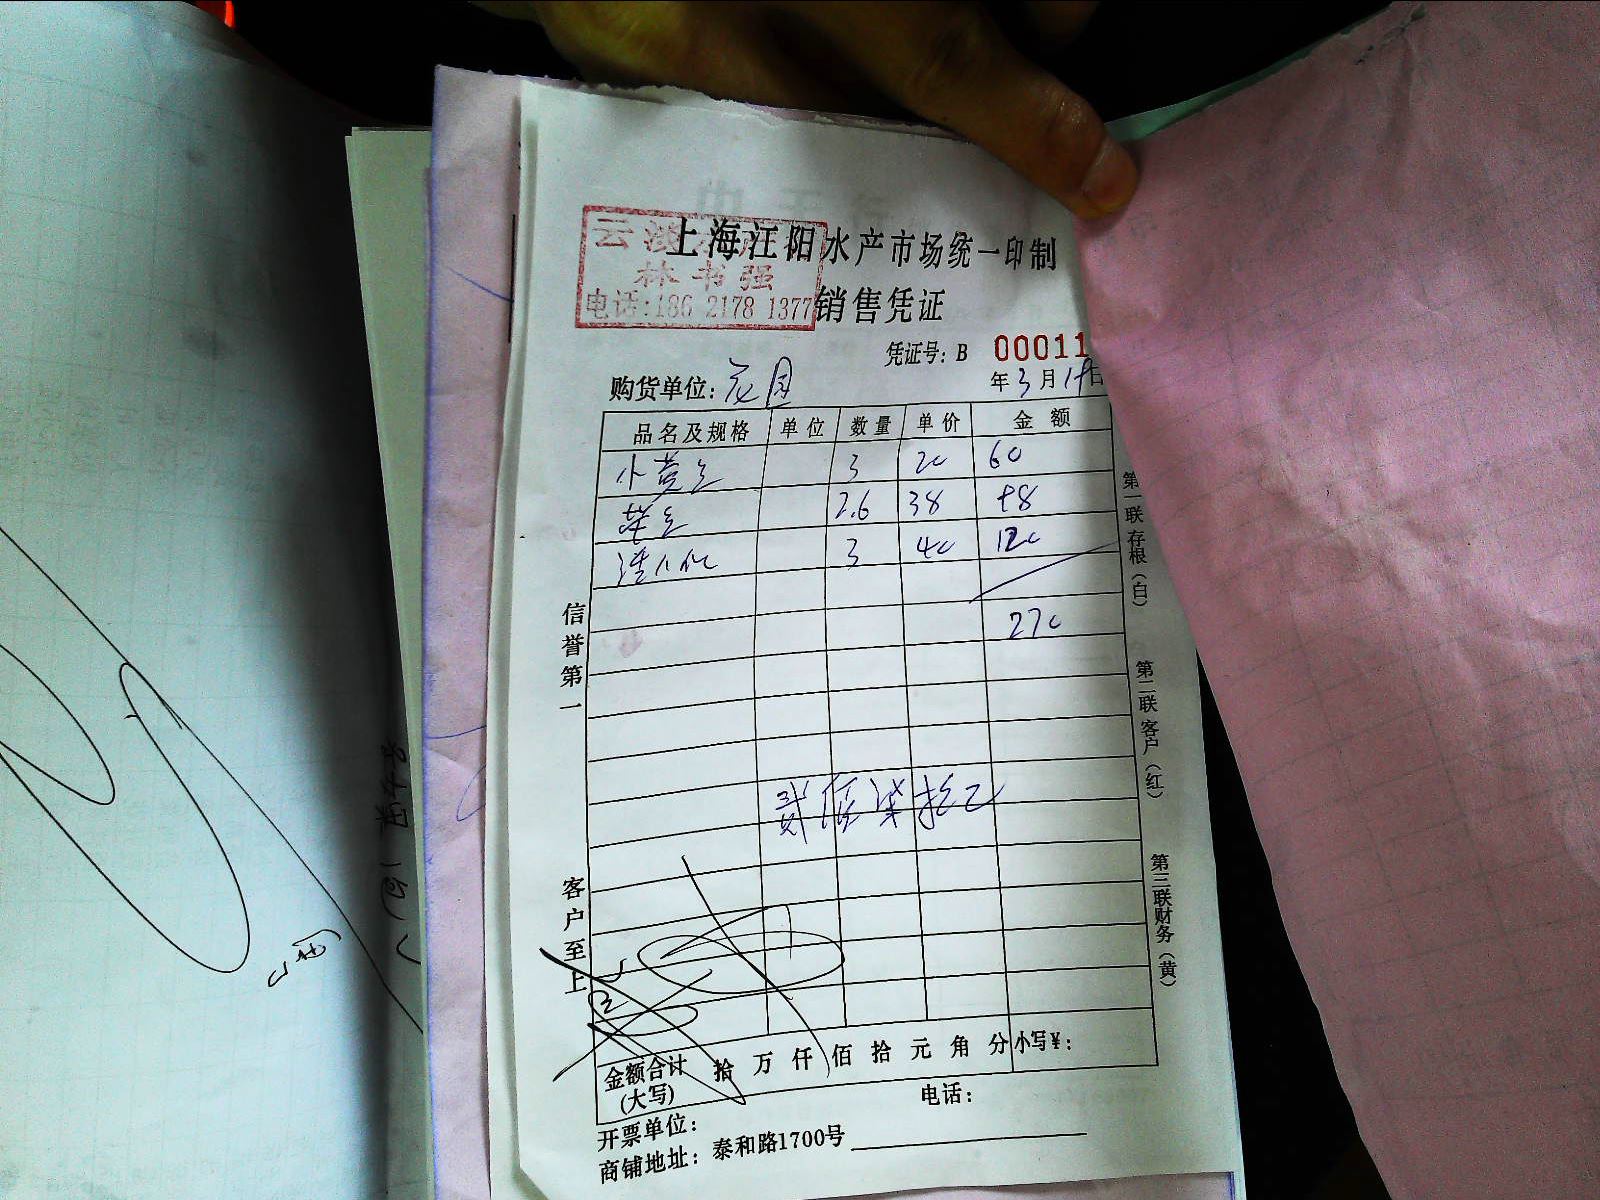 上海江阳水产市场统一印制
云
林书强
电话:186 2178 1377
销售凭证
凭证号：B 00011
购货单位：花园
年3月 日
品名及规格 单位 数量 单价 金额
小黄 3 20 60
2.6 38 98
3 40 120
270
贰佰柒拾元
金额合计(大写) 拾 万 仟 佰 拾 元 角 分 小写¥：
开票单位： 电话：
商铺地址：泰和路1700号
信誉第一
客户至上
第一联存根（白）
第二联客户（红）
第三联财务（黄）